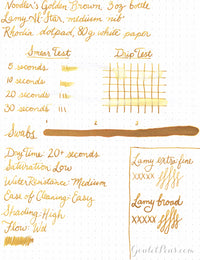 Noodler's Golden Brown, 3oz bottle
Lamy Al-Star, medium nib
Rhodia dotpad, 80g white paper
Smear Test
Drip Test
5 seconds
10 seconds
20 seconds
30 seconds
Swabs
Dry Time: 20+ seconds
Saturation: Low
Water Resistance: Medium
Ease of Cleaning: Easy
Shading: High
Flow: Wet
Lamy extra fine
xxxxx
Lamy broad
xxxxx
GouletPens.com